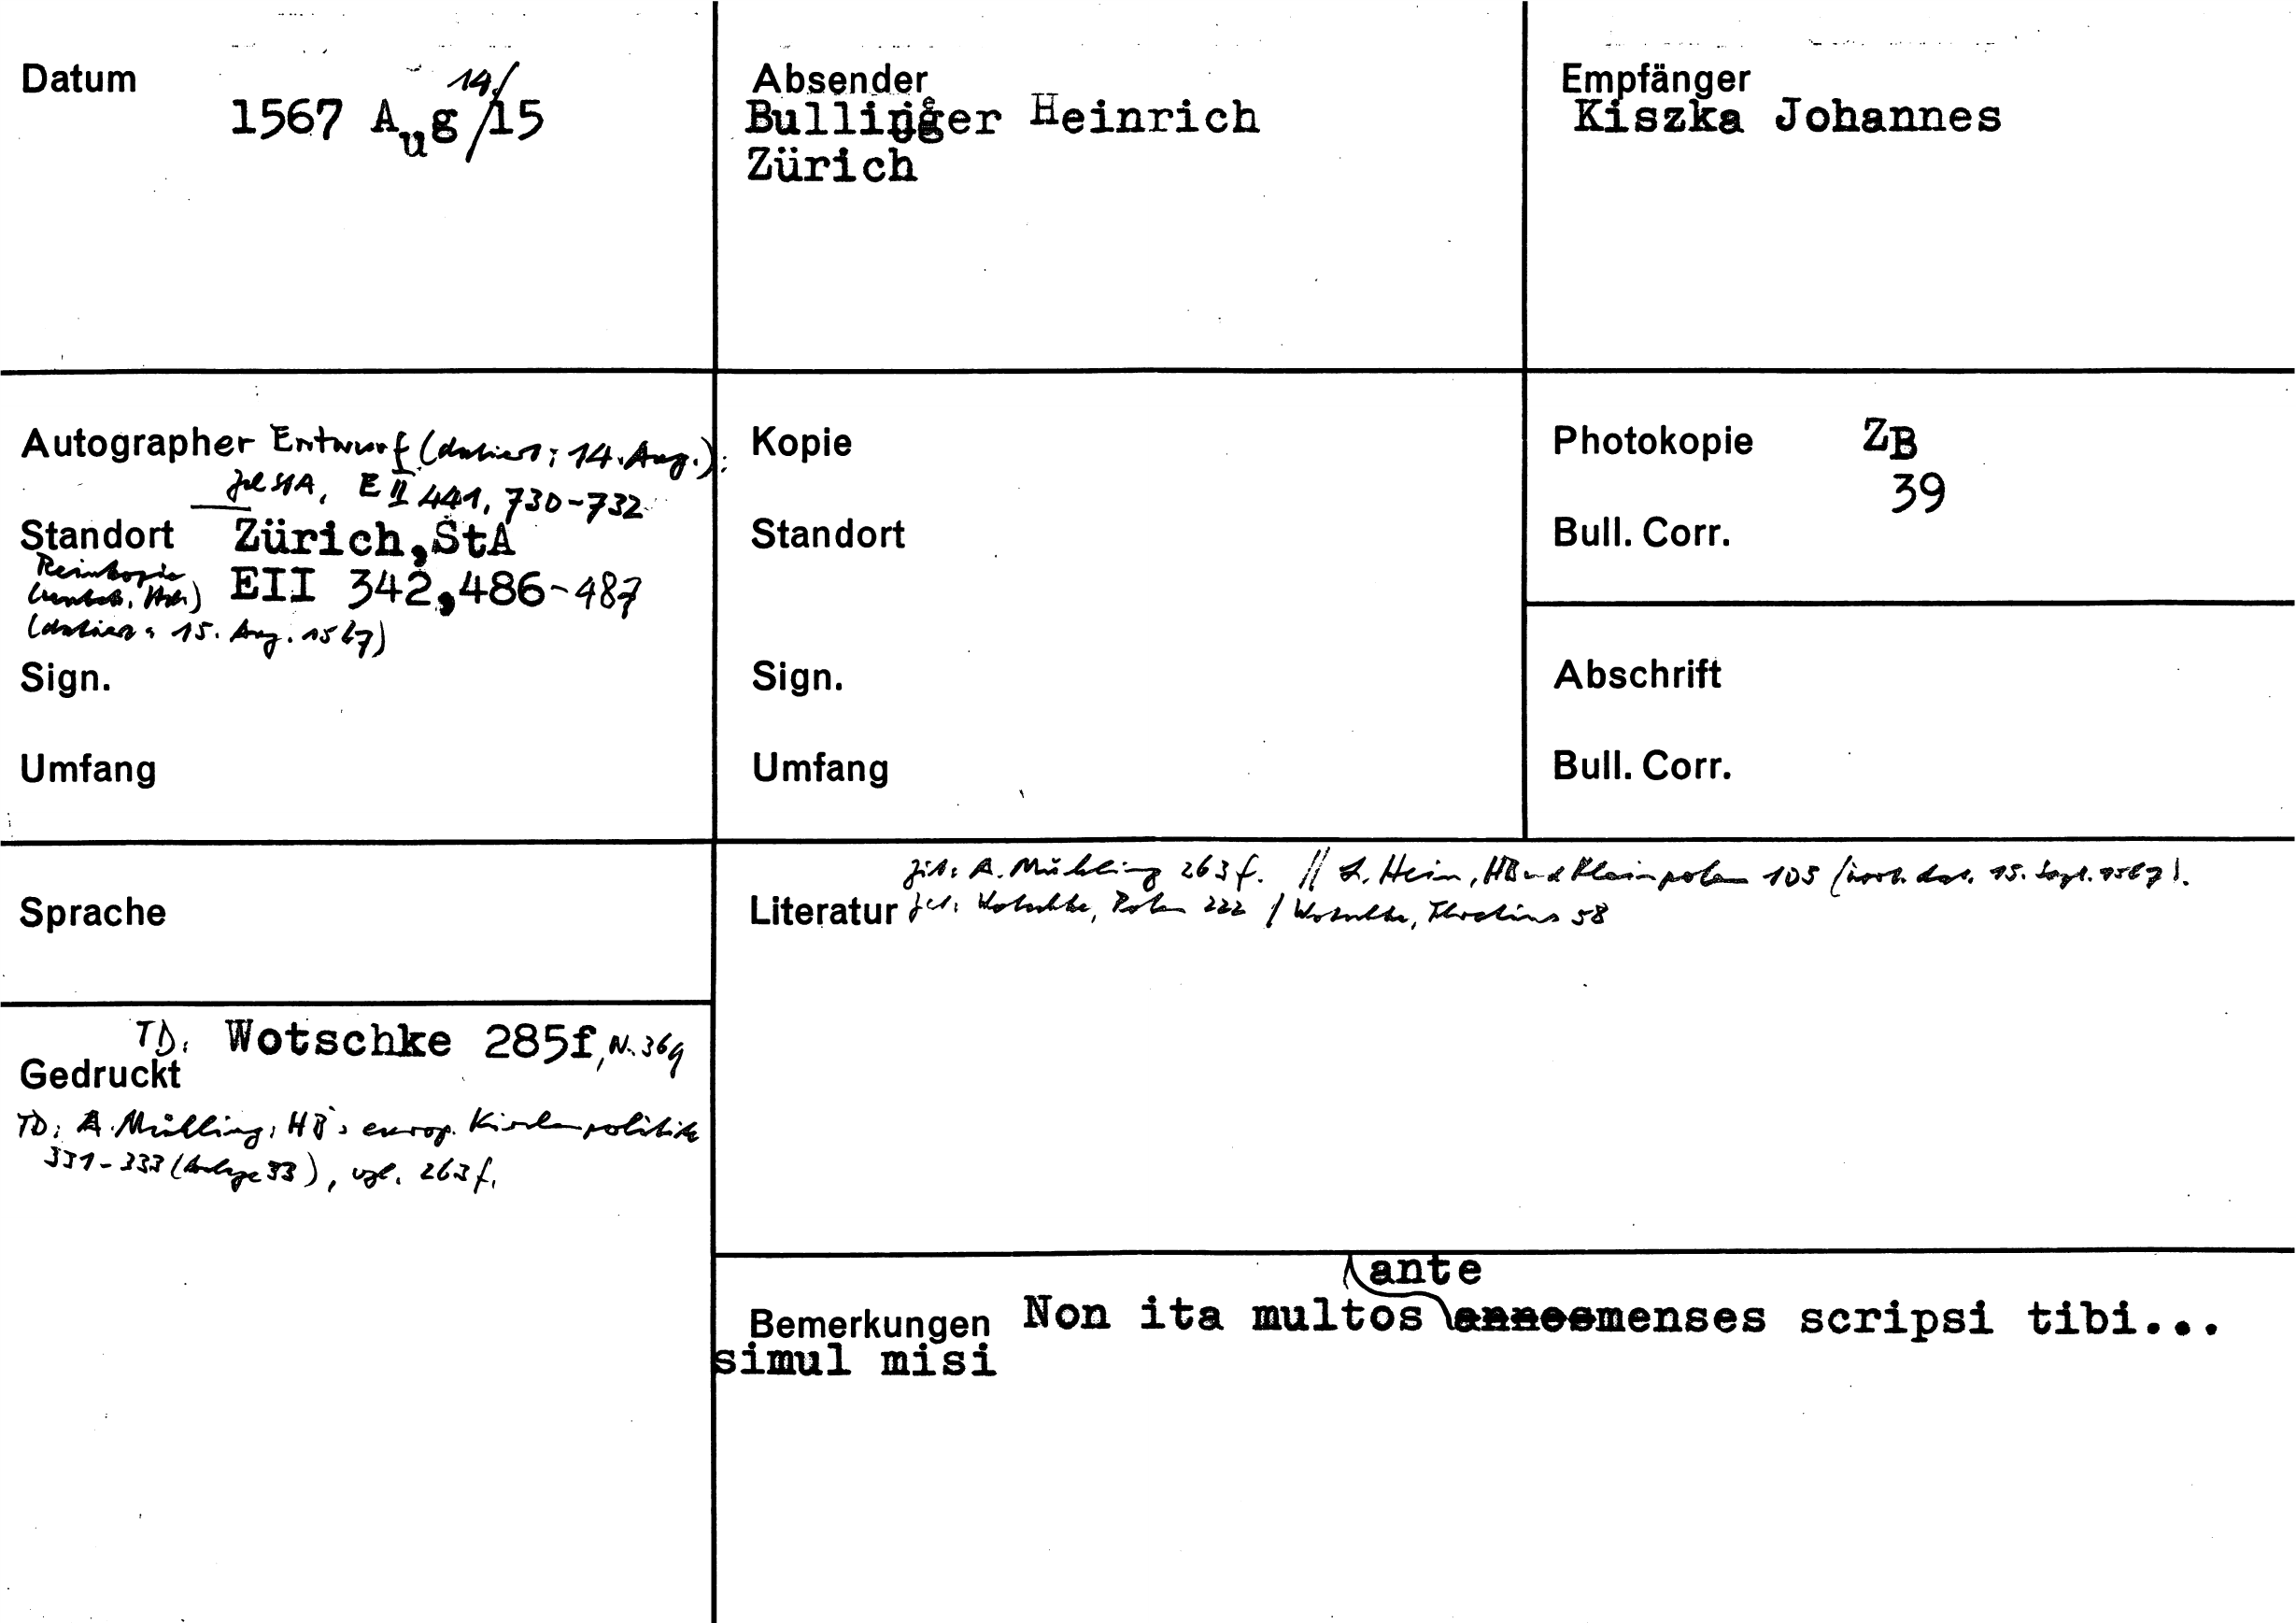 Datum
14./
1567 Aug 15
Absender
Bullinger Heinrich
Zürich
Empfänger
Kiszka Johannes
Autographer Entwurf (datiert: 14. Aug.):
StA, E II 441, 730-732
Standort Zürich, StA
Reinkopie
EII 342, 486-487
(datiert: 15. Aug. 1567)
Sign.
Umfang
Kopie
Standort
Sign.
Umfang
Photokopie ZB
39
Bull. Corr.
Abschrift
Bull. Corr.
Sprache
zit: A. Mühling 263 f. // L. Hein, HB und Kleinpolen 105 (dat. 15. Sept. 1567).
Literatur Wotschke, Polen 222 / Wotschke, Thretius 58
TD. Wotschke 285f, N. 369
Gedruckt
TD: A. Mühling, HB's europ. Kirchenpolitik
331-333 (Anlage 33), vgl. 263 f.
ante
Bemerkungen Non ita multos annos menses scripsi tibi...
simul misi